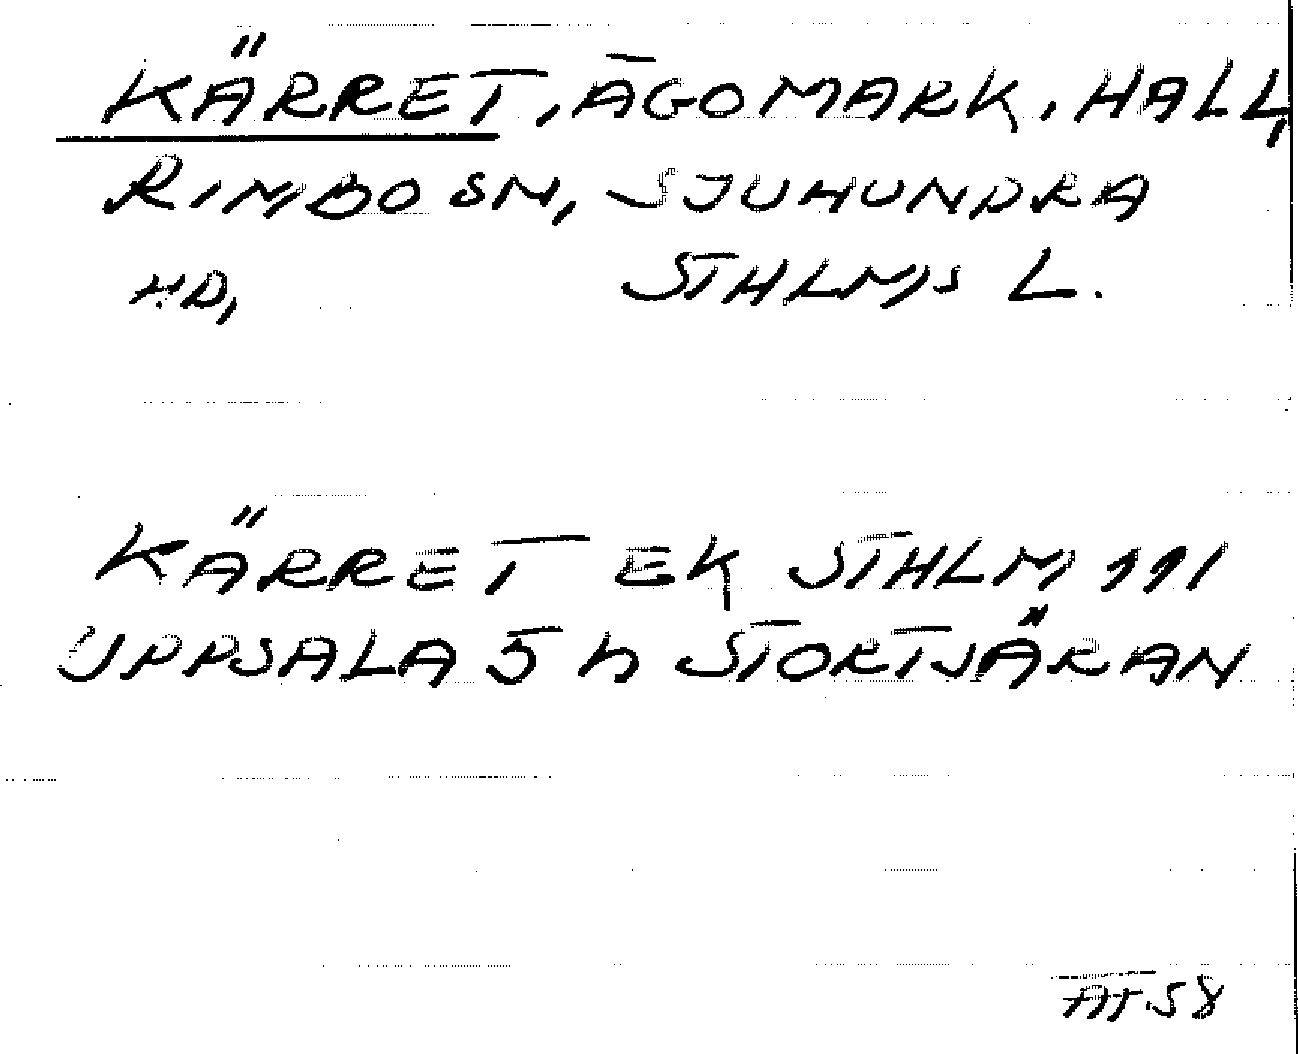 KÄRRET, ÄGOMARK, HALL,
RIMBO SN, SJUHUNDRA
HD, STHLMS L.
KÄRRET EK STHLM 111
UPPSALA 5 h STORTJÄRAN
AT. 58